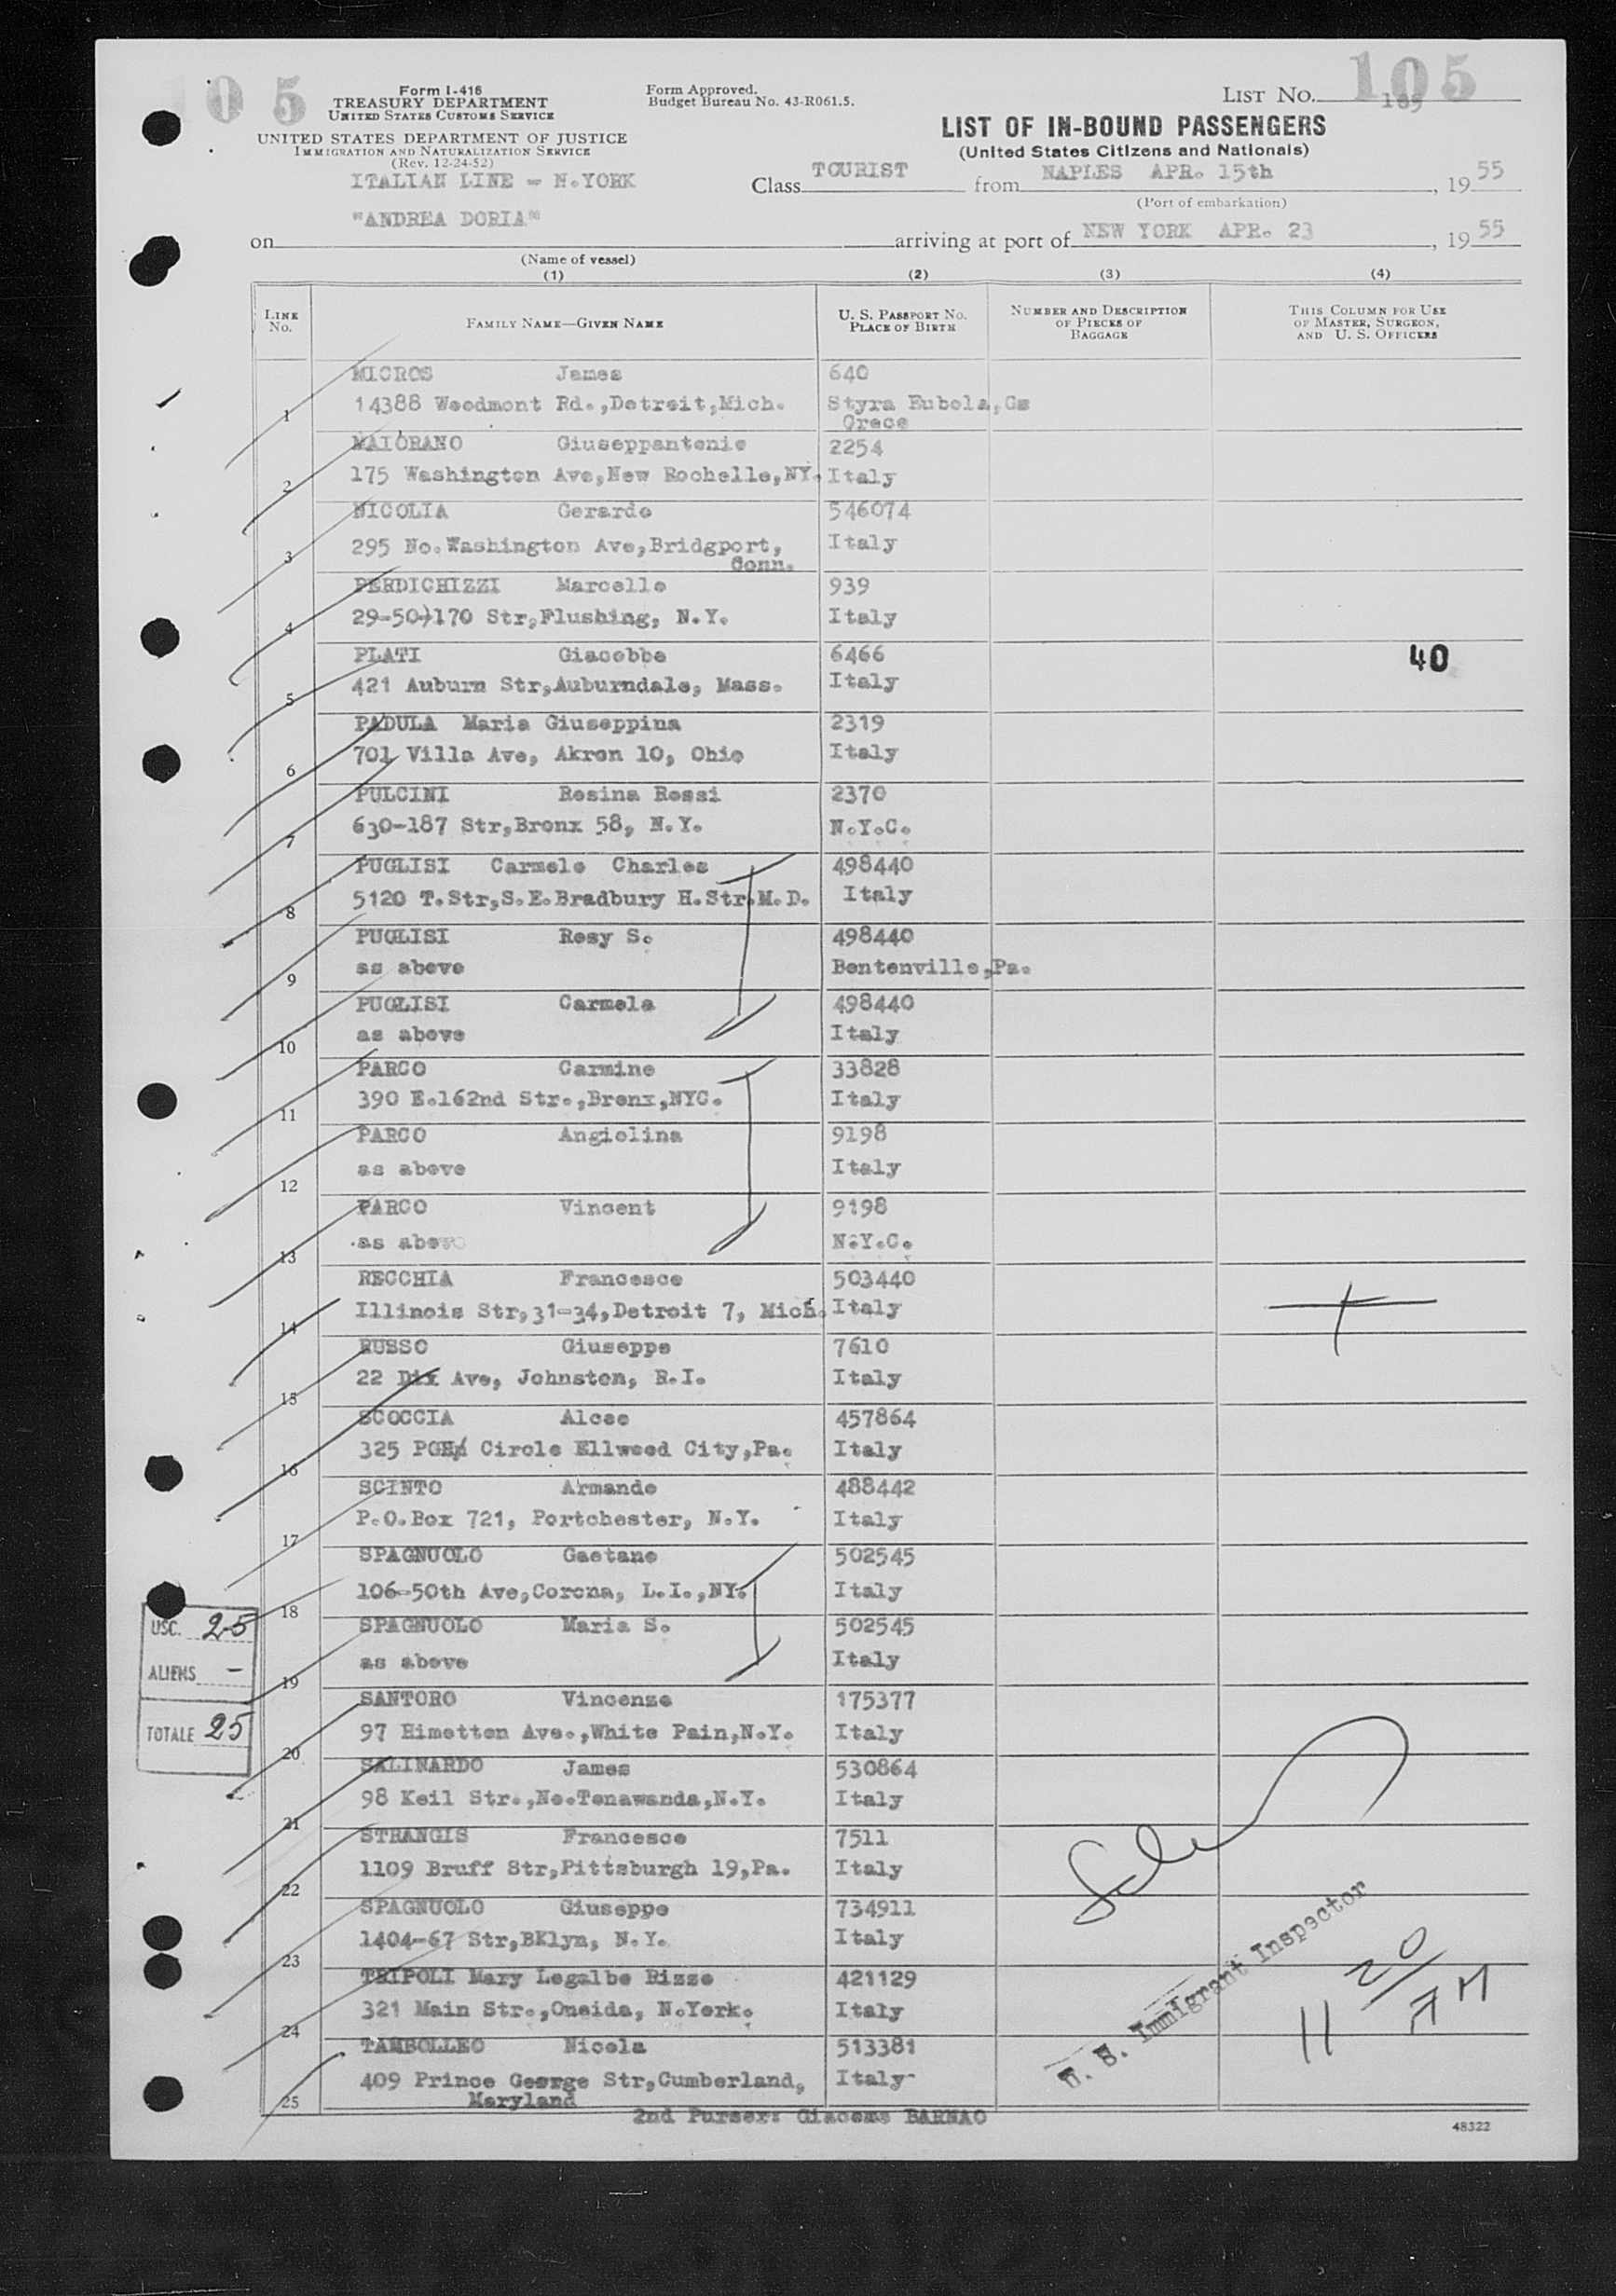 105
Form I-416
TREASURY DEPARTMENT
UNITED STATES CUSTOMS SERVICE
UNITED STATES DEPARTMENT OF JUSTICE
IMMIGRATION AND NATURALIZATION SERVICE
(Rev. 12-24-52)
Form Approved.
Budget Bureau No. 43-R061.5.
LIST NO. 105
105
LIST OF IN-BOUND PASSENGERS
(United States Citizens and Nationals)
ITALIAN LINE - N.YORK
Class TOURIST from NAPLES APR. 15th, 1955
(Port of embarkation)
"ANDREA DORIA"
on arriving at port of NEW YORK APR. 23, 1955
(Name of vessel)
(1) (2) (3) (4)
LINE NO. FAMILY NAME—GIVEN NAME U. S. PASSPORT NO. PLACE OF BIRTH NUMBER AND DESCRIPTION OF PIECES OF BAGGAGE THIS COLUMN FOR USE OF MASTER, SURGEON, AND U. S. OFFICERS
MICROS James 640
1 14388 Woodmont Rd.,Detroit,Mich. Styra Eubola,Gs
Grece
MAIORANO Giuseppantonio 2254
2 175 Washington Ave,New Rochelle,NY. Italy
NICOLIA Gerardo 546074
3 295 No.Washington Ave,Bridgport, Italy
Conn.
PERDICHIZZI Marcello 939
4 29-50-170 Str,Flushing, N.Y. Italy
PLATI Giacobbe 6466 40
5 421 Auburn Str,Auburndale, Mass. Italy
PADULA Maria Giuseppina 2319
6 701 Villa Ave, Akron 10, Ohio Italy
PULCINI Rosina Rossi 2370
7 630-187 Str,Bronx 58, N.Y. N.Y.C.
PUGLISI Carmelo Charles 498440
8 5120 T.Str,S.E.Bradbury H.Str.M.D. Italy
PUGLISI Rosy S. 498440
9 as above Bentenville,Pa.
PUGLISI Carmela 498440
10 as above Italy
PARCO Carmine 33828
11 390 E.162nd Str.,Bronx,NYC. Italy
PARCO Angiolina 9198
12 as above Italy
PARCO Vincent 9198
13 as above N.Y.C.
RECCHIA Francesco 503440
14 Illinois Str,31-34,Detroit 7, Mich. Italy
RUSSO Giuseppe 7610
15 22 Dix Ave, Johnston, R.I. Italy
SCOCCIA Alceo 457864
16 325 Circle Ellwood City,Pa. Italy
SCINTO Armando 488442
17 P.O.Box 721, Portchester, N.Y. Italy
SPAGNUOLO Gaetano 502545
18 106-50th Ave,Corona, L.I.,NY. Italy
SPAGNUOLO Maria S. 502545
19 as above Italy
SANTORO Vincenzo 175377
20 97 Himetten Ave.,White Pain,N.Y. Italy
SALINARDO James 530864
21 98 Keil Str.,No.Tonawanda,N.Y. Italy
STRANGIS Francesco 7511
22 1109 Bruff Str,Pittsburgh 19,Pa. Italy
SPAGNUOLO Giuseppe 734911
23 1404-67 Str,BKlyn, N.Y. Italy
TRIPOLI Mary Legalbo Rizzo 421129
24 321 Main Str.,Oneida, N.York. Italy
TAMBOLLEO Nicola 513381
25 409 Prince George Str,Cumberland, Italy
Maryland
2nd Purser: Giacomo BARNAO
48322
USC. 25
ALIENS -
TOTALE 25
U. S. Immigrant Inspector
11 20 AM